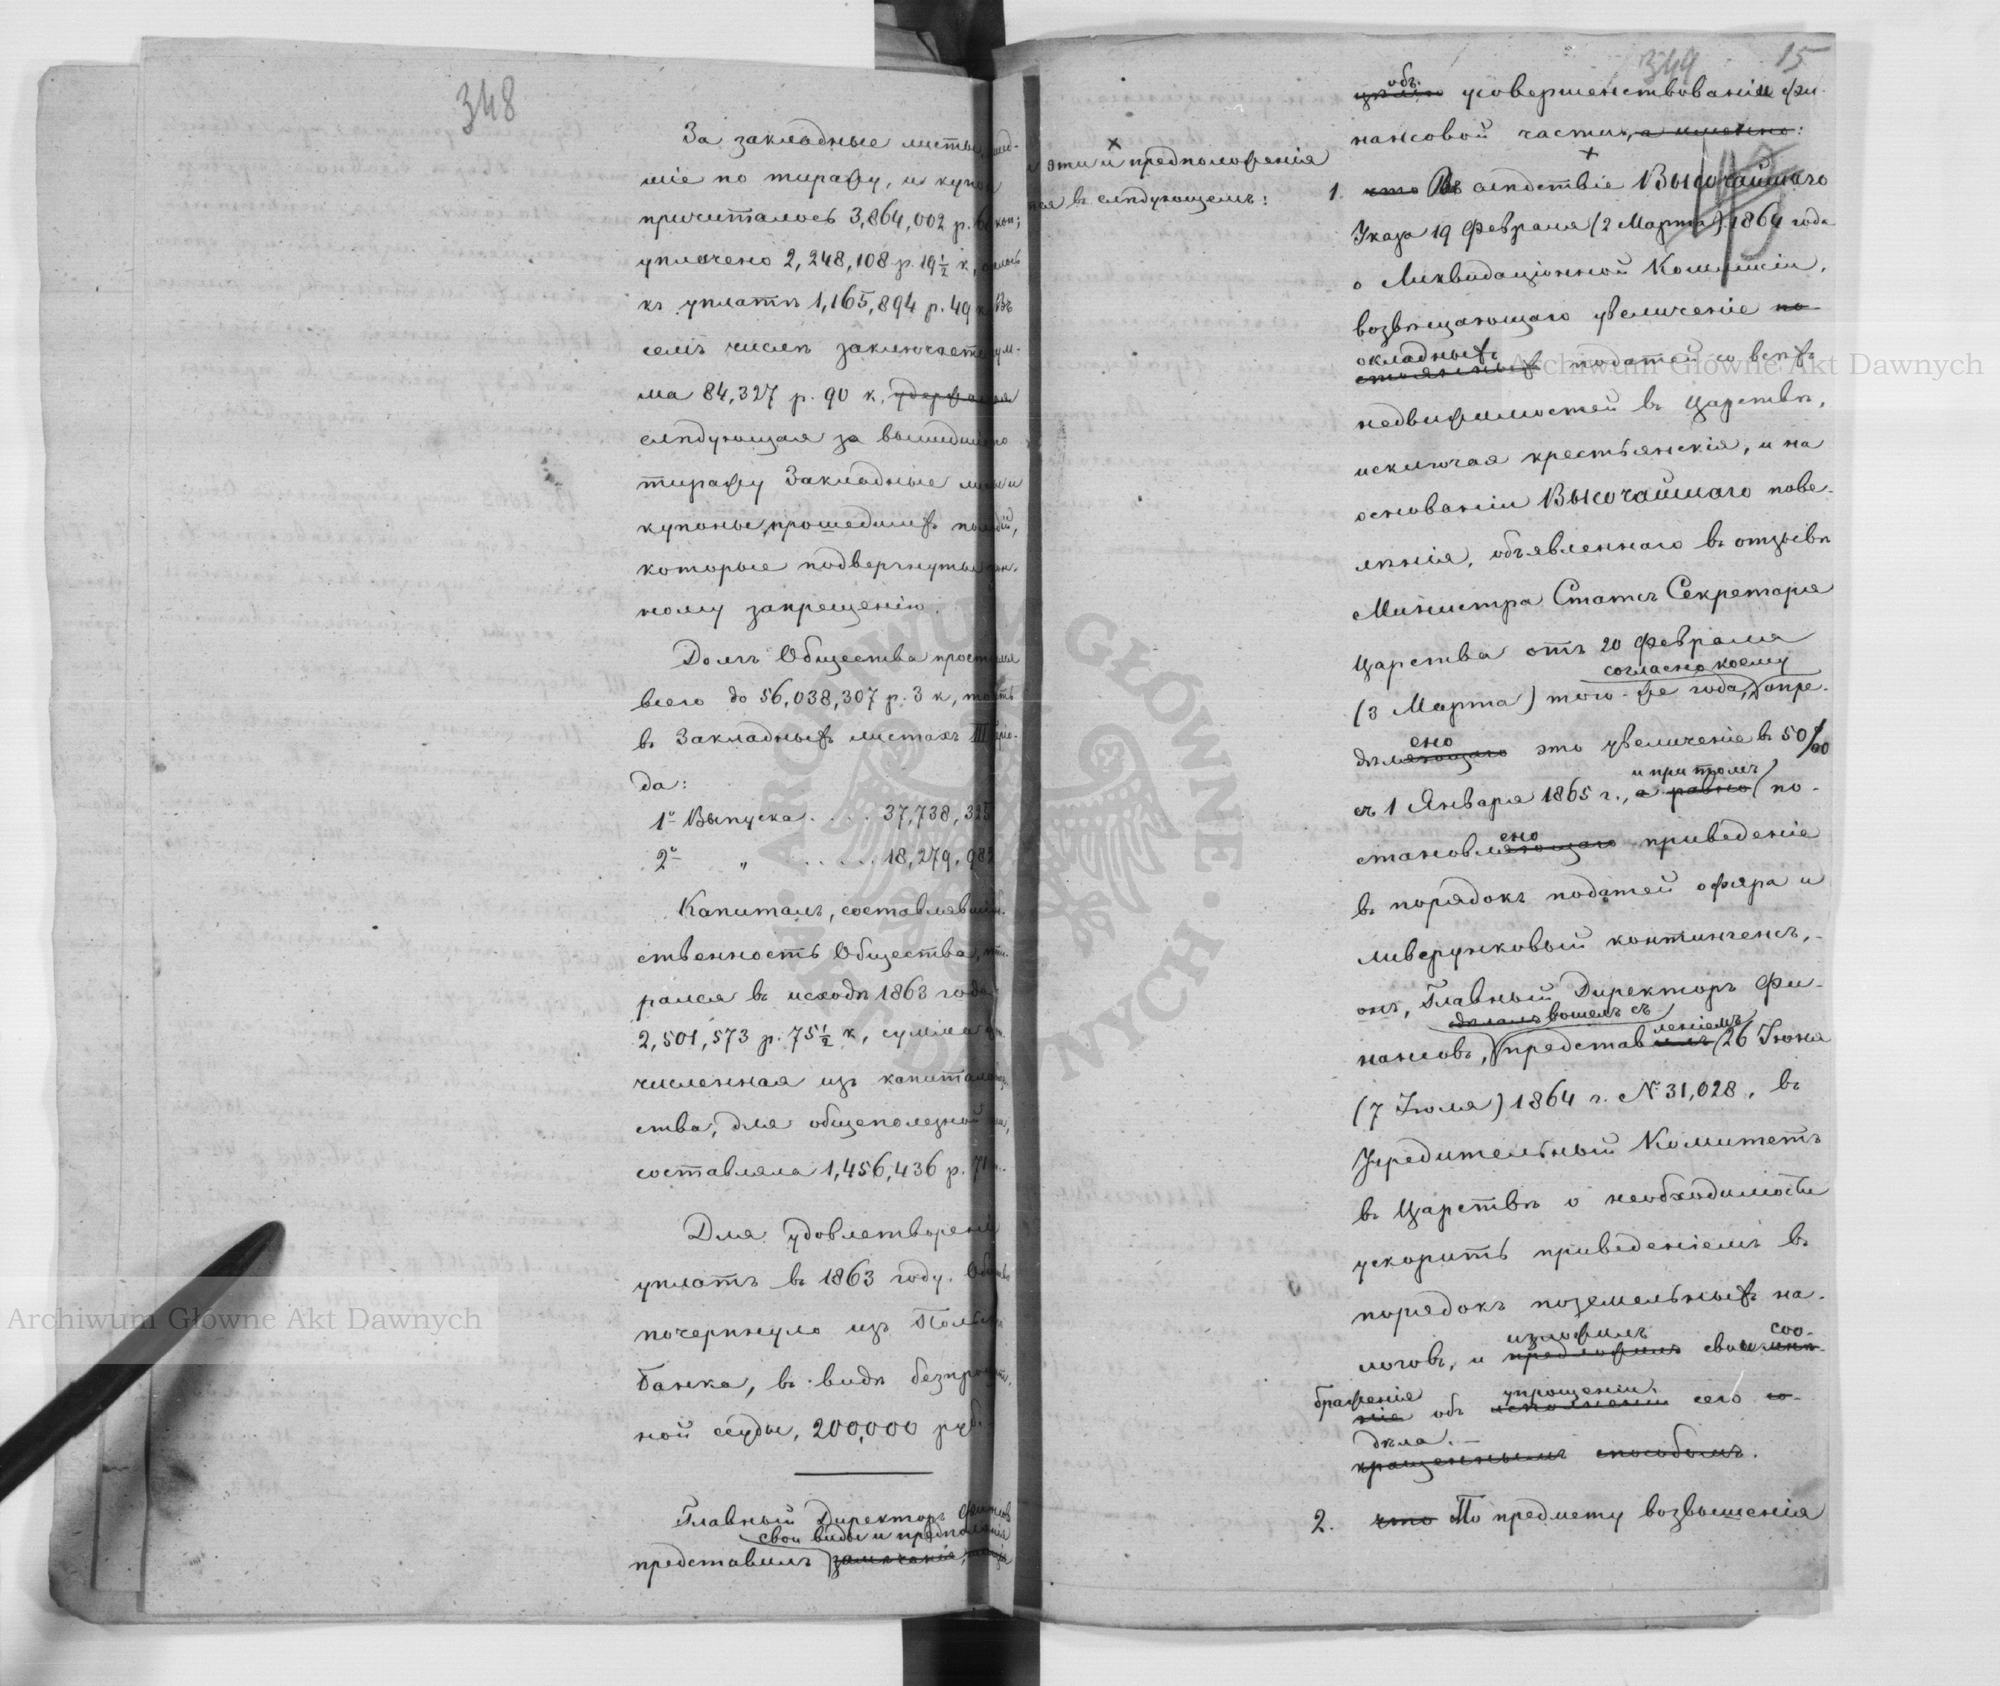 348
За закладные листы, вышед-
шіе по тиражу, и купоны
причиталось 3,864,002 р. коп;
уплачено 2,248,108 р. 19½ к,
къ уплатѣ 1,165,894 р. 49 к. Въ
семъ числѣ заключается сум-
ма 84,327 р. 90 к. удержанная
слѣдующая за вышедшіе по
тиражу Закладные листы и
купоны, прошедшихъ
которые подвергнуты
ному запрещенію.
Долгъ Общества простирался
всего до 56,038,307 р. 3 к, то есть
въ Закладныхъ листахъ III періо-
да:
1º Выпуска . . . . 37,738,325
2º „ . . . . . 18,279,982
Капиталъ, составлявшій
ственность Общества,
рался въ исходѣ 1863 года
2,501,573 р. 75½ к, сумма
численная изъ капитала
ства, для общеполезной
составляла 1,456,436 р. 71
Для удовлетворенія
уплатъ въ 1863 году. Общество
почерпнуло изъ Польскаго
Банка, въ видѣ безпроцент-
ной ссуды, 200,000 руб.
Главный Директоръ Финансовъ
свои виды и предположенія
представилъ замѣчанія,
349 15
объ усовершенствованіи фи-
нансовой части, а именно:
и эти предположенія
въ слѣдующемъ:
1. что Въ слѣдствіе Высочайшаго
Указа 19 Февраля (2 Марта) 1864 года
о Ликвидаціонной Коммисіи,
возвѣщающаго увеличеніе по-
окладныхъ
стоянныхъ податей со всѣхъ
недвижимостей въ Царствѣ,
исключая крестьянскія, и на
основаніи Высочайшаго пове-
лѣнія, объявленнаго въ отзывѣ
Министра Статсъ Секретаря
Царства отъ 20 Февраля
согласно коему
(3 Марта) того-же года, опре-
ено
дѣляющаго это увеличеніе въ 50%
и при томъ
съ 1 Января 1865 г., а равно по-
ено
становляющаго приведеніе
въ порядокъ податей офяра и
ливерунковый контингенсъ,
онъ, Главный Директоръ Фи-
дѣлалъ вошелъ съ
леніемъ
нансовъ, представилъ 26 Іюня
(7 Іюля) 1864 г. № 31,028, въ
Учредительный Комитетъ
въ Царствѣ о необходимости
ускорить приведеніемъ въ
порядокъ поземельныхъ на-
изложилъ соо-
логовъ, и предложилъ свои мнѣ-
браженія упрощеніи
ніе объ исполненіи сего со-
дѣла.
кращеннымъ способомъ.
2. что По предмету возвышенія
Archiwum Główne Akt Dawnych
Archiwum Główne Akt Dawnych
ARCHIWUM GŁÓWNE AKT DAWNYCH